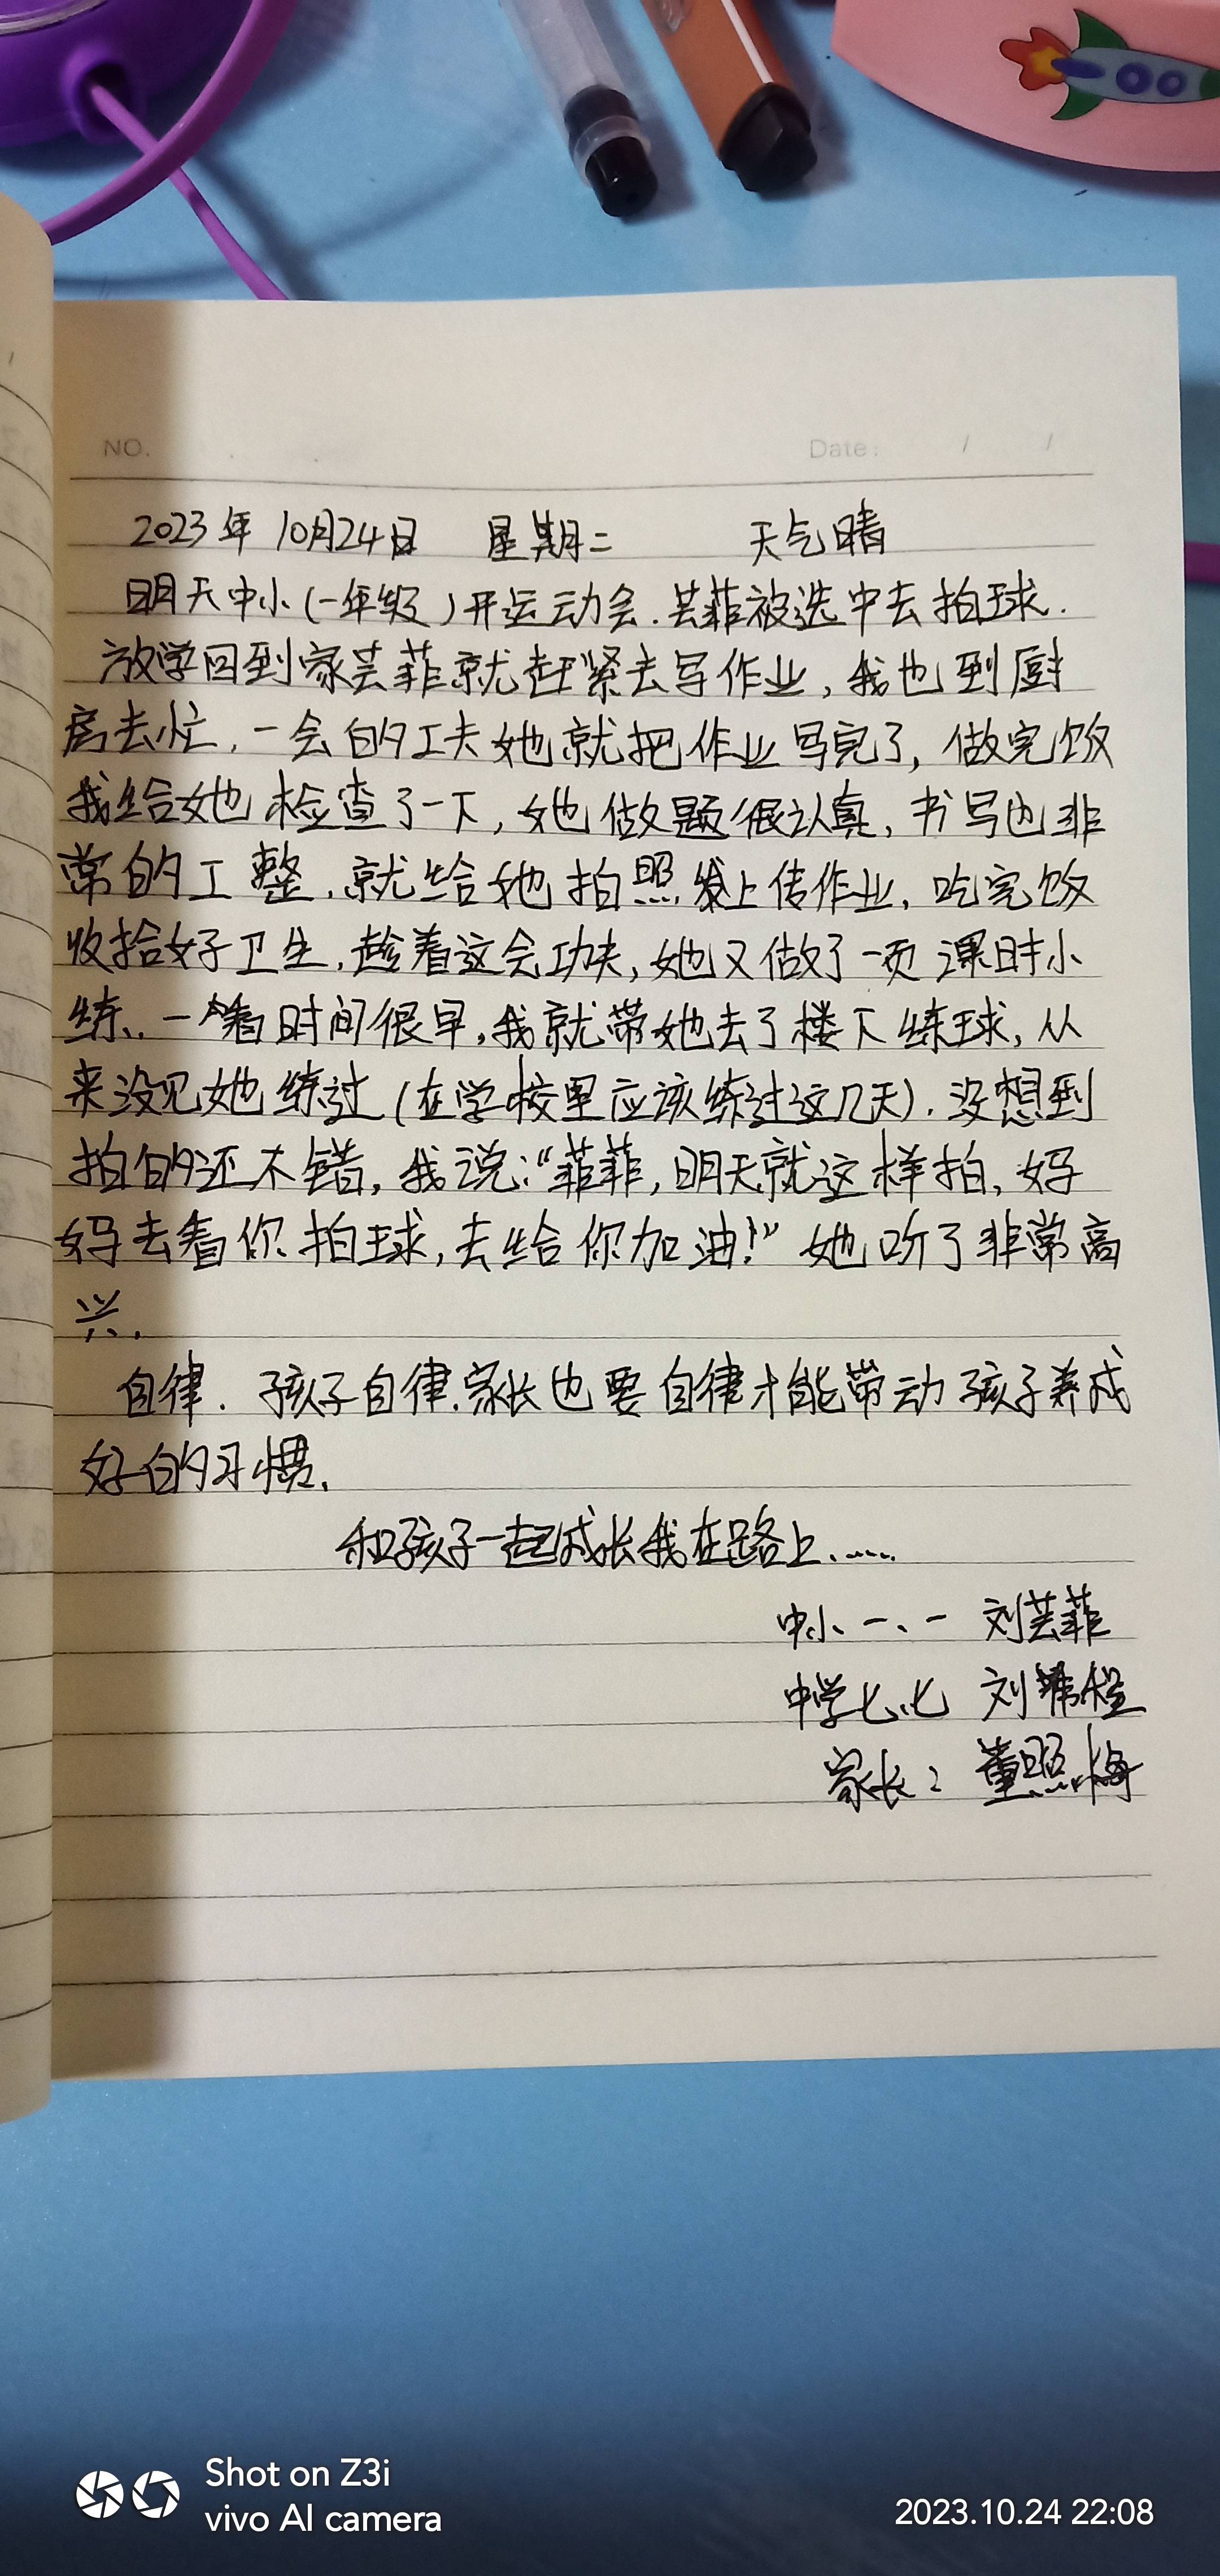 NO.
Date: / /
2023年10月24日 星期二 天气晴
明天中小(一年级)开运动会.芸菲被选中去拍球.
放学回到家芸菲就赶紧去写作业,我也到厨
房去忙,一会的工夫她就把作业写完了,做完饭
我给她检查了一下,她做题很认真,书写也非
常的工整,就给她拍照发上传作业,吃完饭
收拾好卫生,趁着这会功夫,她又做了一页课时小
练..一看时间很早,我就带她去了楼下练球,从
来没见她练过(在学校里应该练过这几天).没想到
拍的还不错,我说:“菲菲,明天就这样拍,妈
妈去看你拍球,去给你加油!”她听了非常高
兴.
自律.孩子自律.家长也要自律才能带动孩子养成
好的习惯.
和孩子一起成长我在路上......
中小一、一 刘芸菲
中学七.七 刘
家长: 董照梅
Shot on Z3i
vivo AI camera
2023.10.24 22:08